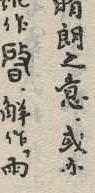 晴朗之意.或亦
作晵.解作雨